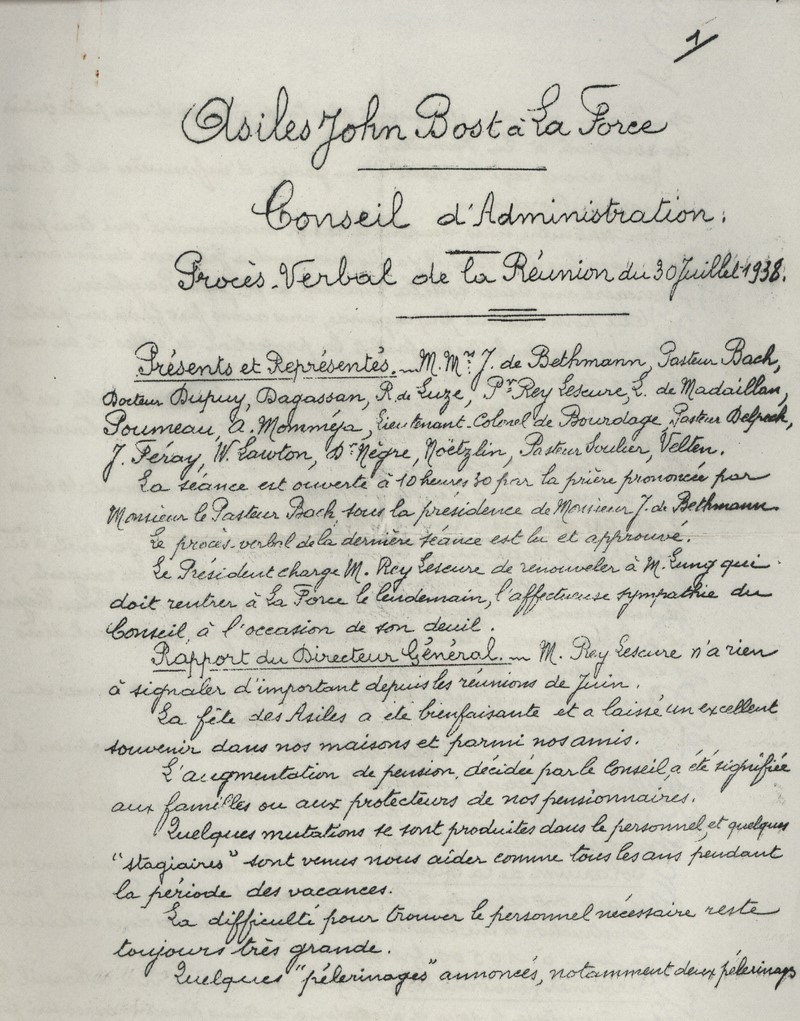 1
Asiles John Bost à La Force
Conseil d'Administration.
Procès-Verbal de la Réunion du 30 Juillet 1938.
Présents et Représentés. _ M.Mrs J. de Bethmann, Pasteur Bach,
Docteur Dupuy, Dagassan, R. de Luze, Pr Rey Lescure, L. de Madaillan,
Poumeau, A. Momméja, Lieutenant-Colonel de Bourdage, Pasteur Delpech,
J. Féray, W. Lawton, Dr Nègre, Noëtzlin, Pasteur Soulier, Velten.
La séance est ouverte à 10 heures 30 par la prière prononcée par
Monsieur le Pasteur Bach, sous la présidence de Monsieur J. de Bethmann.
Le procès-verbal de la dernière séance est lu et approuvé.
Le Président charge M. Rey Lescure de renouveler à M. Lung qui
doit rentrer à La Force le lendemain, l'affectueuse sympathie du
Conseil, à l'occasion de son deuil.
Rapport du Directeur Général. _ M. Rey Lescure n'a rien
à signaler d'important depuis les réunions de Juin.
La fête des Asiles a été bienfaisante et a laissé un excellent
souvenir dans nos maisons et parmi nos amis.
L'augmentation de pension, décidée par le Conseil, a été signifiée
aux familles ou aux protecteurs de nos pensionnaires.
Quelques mutations se sont produites dans le personnel, et quelques
"stagiaires" sont venus nous aider comme tous les ans pendant
la période des vacances.
La difficulté pour trouver le personnel nécessaire reste
toujours très grande.
Quelques "pélerinages" annoncés, notamment deux pélerinags